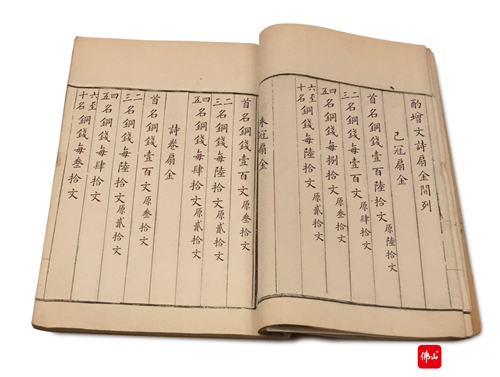 酌增文詩扇金開列
已冠扇金
首名銅錢壹百陸拾文原陸拾文
二三名銅錢每壹百文原肆拾文
四五名銅錢每捌拾文原叁拾文
六至十名銅錢每陸拾文
未冠扇金
首名銅錢壹百文原叁拾文
二三名銅錢每陸拾文原貳拾文
四五名銅錢每肆拾文原貳拾文
詩卷扇金
首名銅錢壹百文原叁拾文
二三名銅錢每陸拾文原貳拾文
四五名銅錢每肆拾文
六至十名銅錢每叁拾文
佛山